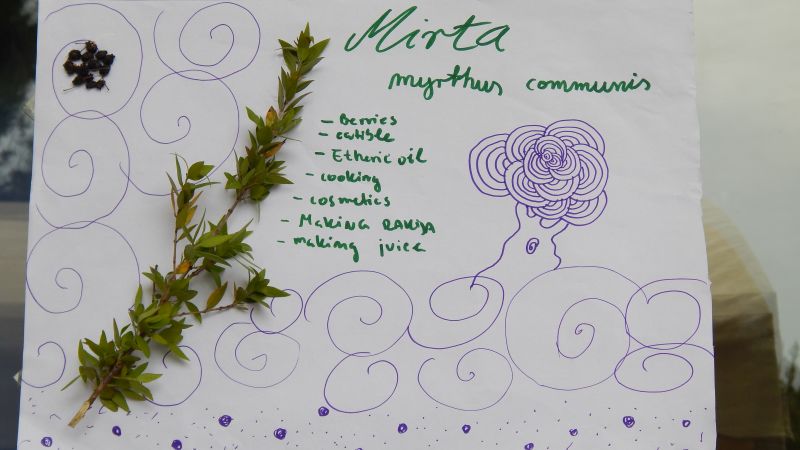 Mirta
myrthus communis
- Berries
- eatible
- Etheric oil
- cooking
- cosmetics
- MAKING RAKIJA
- making juice